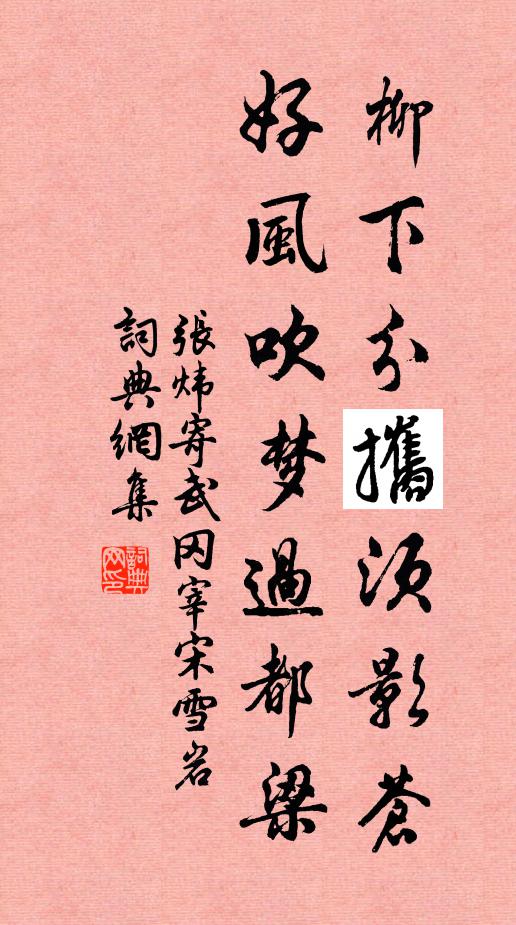 柳下分攜須影蒼
好風吹梦過都梁
張炜寄武冈宰宋雪岩
詞典網集
詞典网印